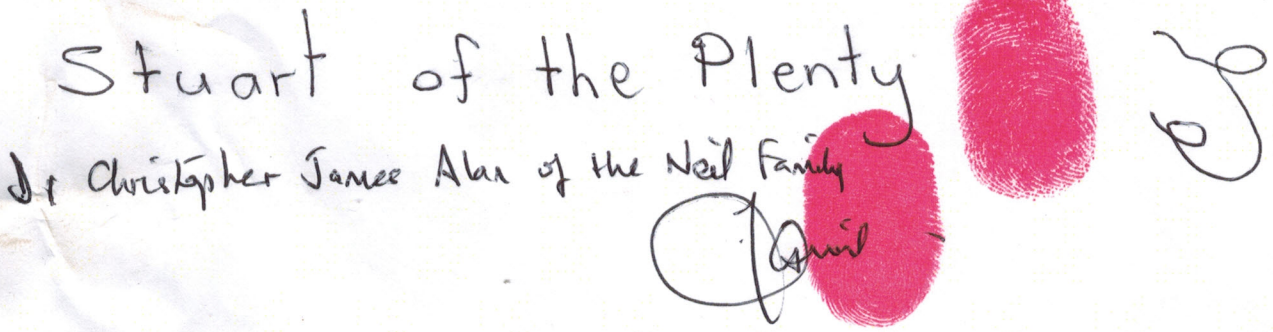 Stuart of the Plenty
Dr Christopher James Alan of the Neil Family